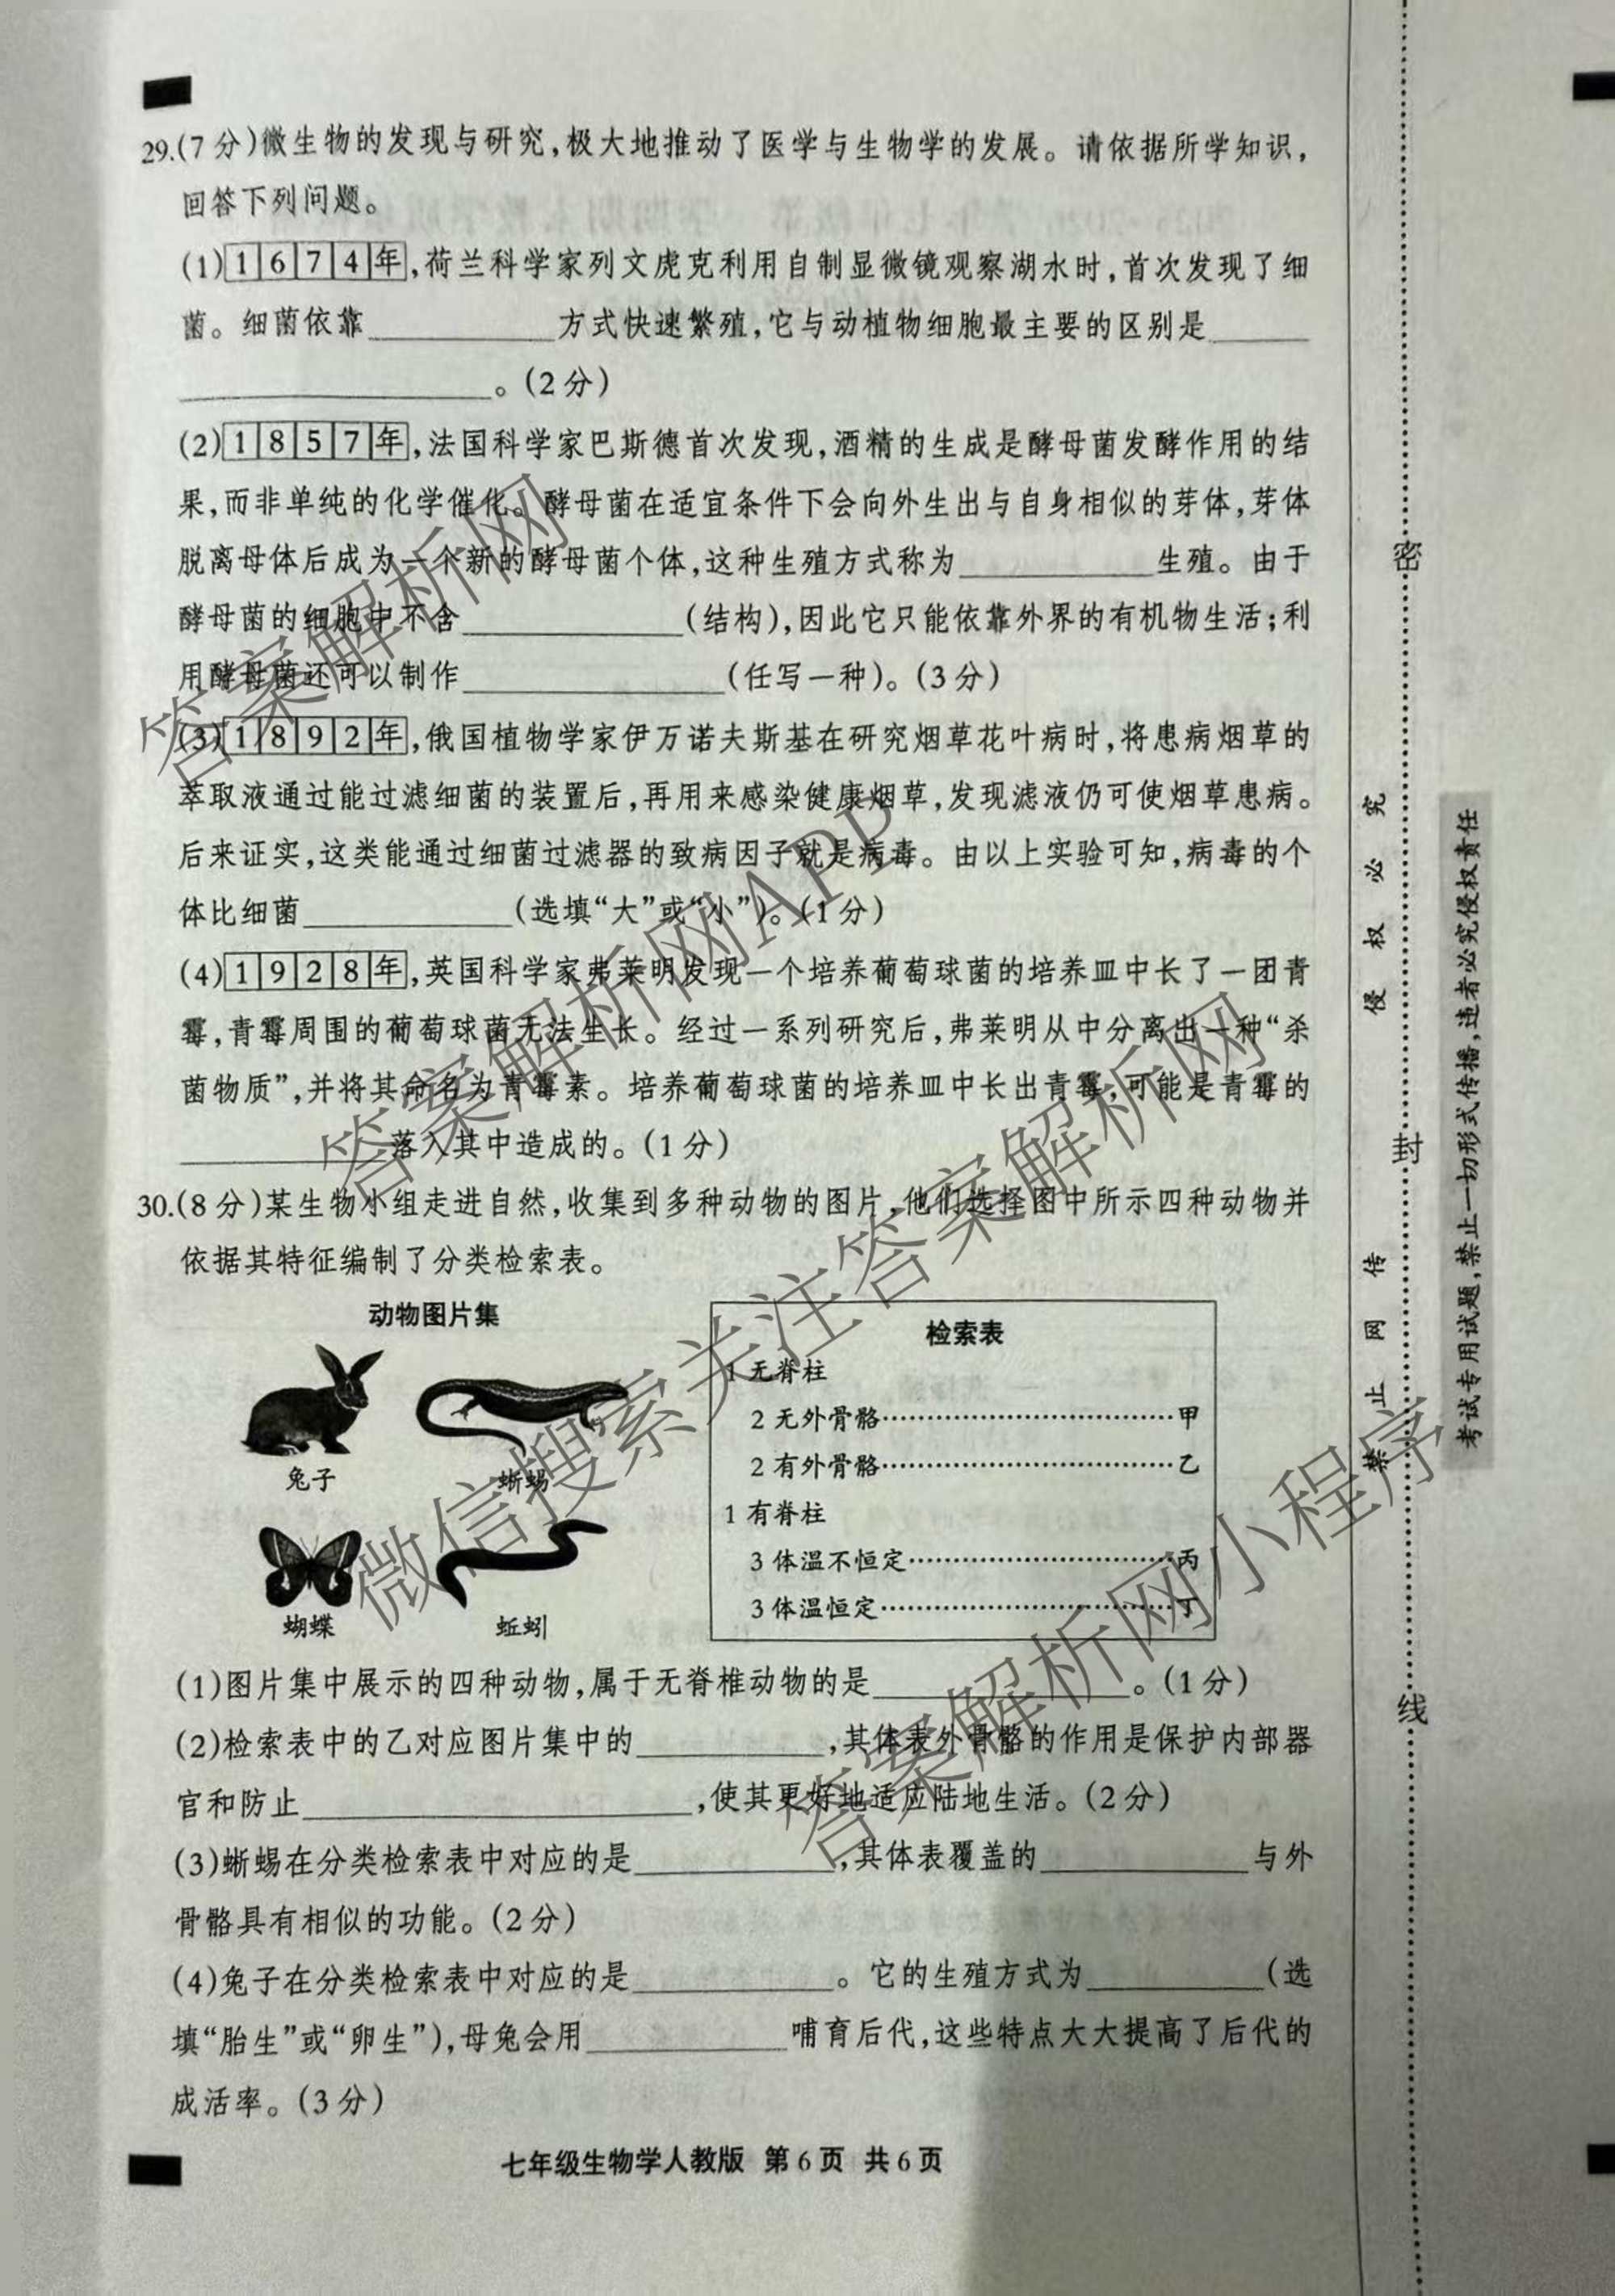 29.(7分)微生物的发现与研究,极大地推动了医学与生物学的发展。请依据所学知识,
回答下列问题。
(1)1674年,荷兰科学家列文虎克利用自制显微镜观察湖水时,首次发现了细
菌。细菌依靠____________方式快速繁殖,它与动植物细胞最主要的区别是______
____________________。(2分)
(2)1857年,法国科学家巴斯德首次发现,酒精的生成是酵母菌发酵作用的结
果,而非单纯的化学催化。酵母菌在适宜条件下会向外生出与自身相似的芽体,芽体
脱离母体后成为一个新的酵母菌个体,这种生殖方式称为____________生殖。由于
酵母菌的细胞中不含______________(结构),因此它只能依靠外界的有机物生活;利
用酵母菌还可以制作________________(任写一种)。(3分)
(3)1892年,俄国植物学家伊万诺夫斯基在研究烟草花叶病时,将患病烟草的
萃取液通过能过滤细菌的装置后,再用来感染健康烟草,发现滤液仍可使烟草患病。
后来证实,这类能通过细菌过滤器的致病因子就是病毒。由以上实验可知,病毒的个
体比细菌____________(选填“大”或“小”)。(1分)
(4)1928年,英国科学家弗莱明发现一个培养葡萄球菌的培养皿中长了一团青
霉,青霉周围的葡萄球菌无法生长。经过一系列研究后,弗莱明从中分离出一种“杀
菌物质”,并将其命名为青霉素。培养葡萄球菌的培养皿中长出青霉,可能是青霉的
____________落入其中造成的。(1分)
30.(8分)某生物小组走进自然,收集到多种动物的图片,他们选择图中所示四种动物并
依据其特征编制了分类检索表。
动物图片集
兔子
蜥蜴
蝴蝶
蚯蚓
检索表
1 无脊柱
2 无外骨骼……………………………甲
2 有外骨骼……………………………乙
1 有脊柱
3 体温不恒定…………………………丙
3 体温恒定……………………………丁
(1)图片集中展示的四种动物,属于无脊椎动物的是________________。(1分)
(2)检索表中的乙对应图片集中的____________,其体表外骨骼的作用是保护内部器
官和防止________________________,使其更好地适应陆地生活。(2分)
(3)蜥蜴在分类检索表中对应的是____________,其体表覆盖的____________与外
骨骼具有相似的功能。(2分)
(4)兔子在分类检索表中对应的是____________。它的生殖方式为___________(选
填“胎生”或“卵生”),母兔会用____________哺育后代,这些特点大大提高了后代的
成活率。(3分)
七年级生物学人教版 第6页 共6页
密
封
线
禁止网传 侵权必究
考试专用试题,禁止一切形式传播,违者必究侵权责任
答案解析网
答案解析网APP
微信搜索关注答案解析网
答案解析网小程序